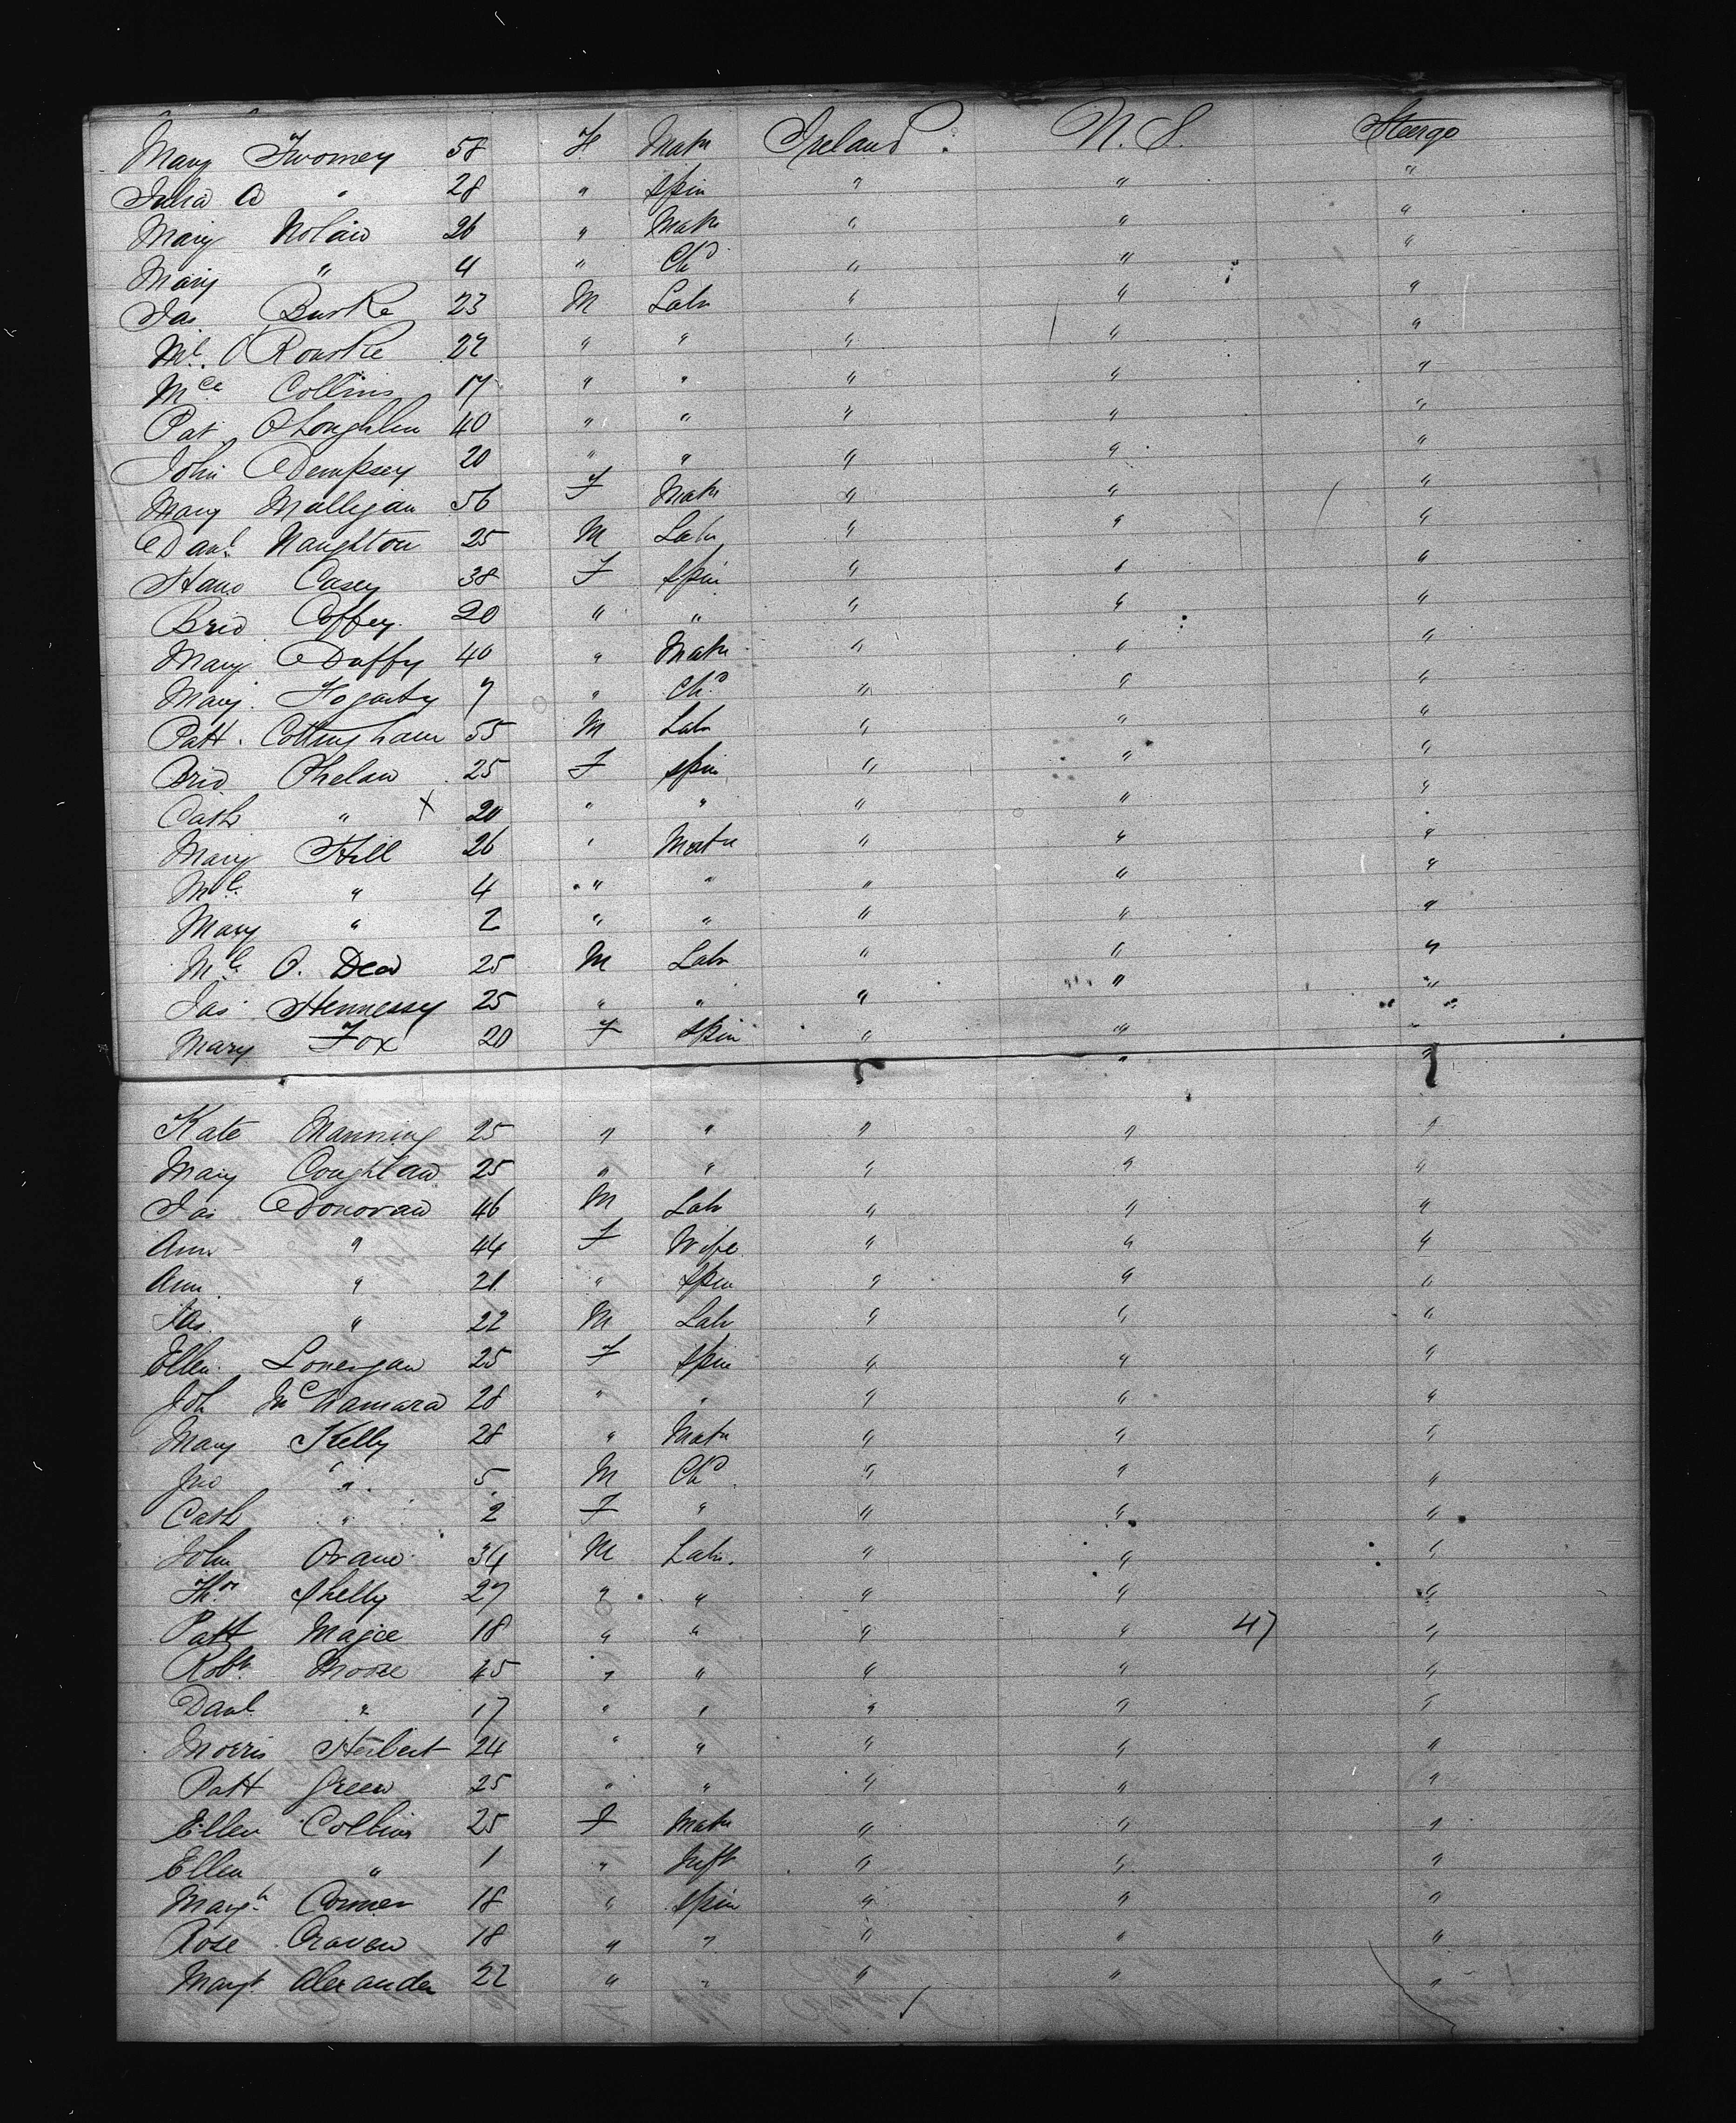 Mary Twomey 58 F Matn Ireland. U.S. Steerge
Julia A " 28 " Spin " " "
Mary Nolan 26 " Matn " " "
Mary " 4 " Chd " " "
Jas Burke 23 M Labr " " "
Ml. O'Rourke 22 " " " " "
Mce Collins 17 " " " " "
Pat OLoughlen 40 " " " " "
John Dempsey 20 " " " " "
Mary Mulligan 56 F Matn " " "
Danl. Naughton 25 M Labr " " "
Hano Casey 38 F Spin " " "
Brid Coffey 20 " " " " "
Mary Duffy 40 " Matn " " "
Mary. Hogarty 7 " Chd " " "
Patt. Cottingham 55 M Labr " " "
Brid Phelan 25 F Spin " " "
Cath " X 20 " " " " "
Mary Hill 26 " Matn " " "
Ml. " 4 " " " " "
Mary " 2 " " " " "
Ml. O. Dea 25 M Labr " " "
Jas Hennessy 25 " " " " "
Mary Fox 20 F Spin " " "
Kate Manning 25 " " " " "
Mary Coughlan 25 " " " " "
Jas Donovan 46 M Labr " " "
Ann " 44 F Wife " " "
Ann " 21 " Spin " " "
Jas " 22 M Labr " " "
Ellen Lonergan 25 F Spin " " "
Joh McNamara 28 " " " " "
Mary Kelly 28 " Matn " " "
Jno " 5 M Chd " " "
Cath " 2 F " " " "
John 34 M Labr. " " "
Thos Shelly 27 " " " " "
Patt Magee 18 " " " " 47 "
Robt. Moore 45 " " " " "
Danl " 17 " " " " "
Morris Herbert 24 " " " " "
Patt Green 25 " " " " "
Ellen Collins 25 F Matn " " "
Ellen " 1 " Inft " " "
Margt. 18 " Spin " " "
Rose Craven 18 " " " " "
Margt. Alexander 22 " " " " "